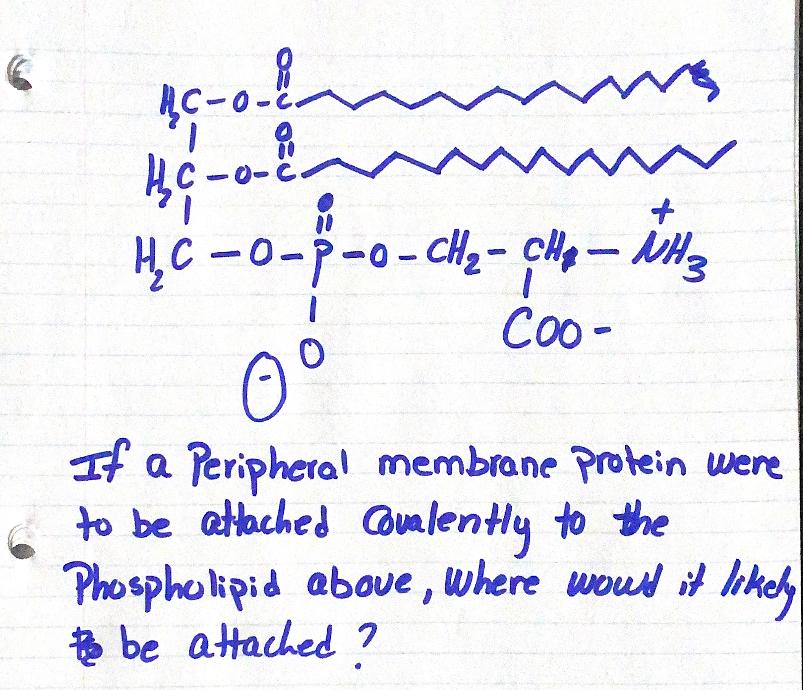 O O
H₂C-O-C
H₂C-O-C
O +
H₂C-O-P-O-CH₂-CH-NH₃
O COO-
-
If a Peripheral membrane protein were
to be attached Covalently to the
Phospholipid above, where would it likely
be attached?